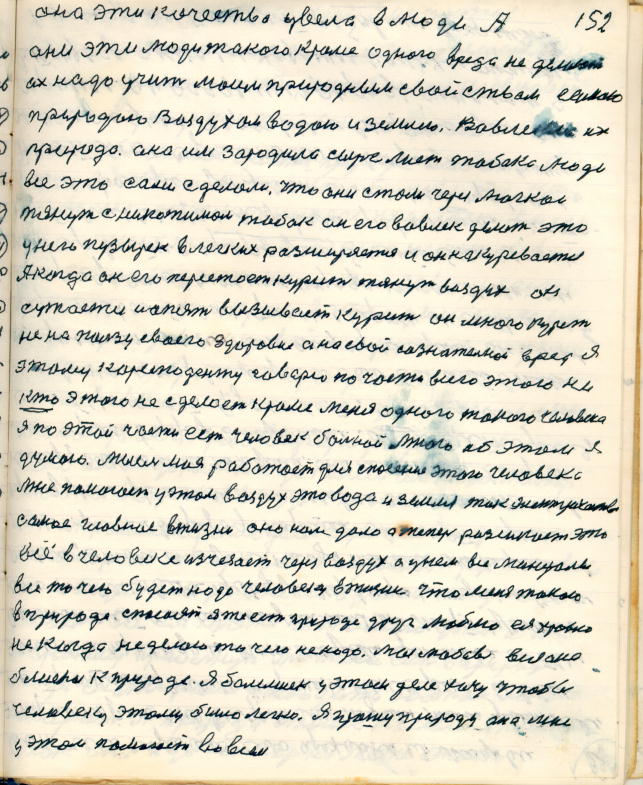 она эти качества увела в люди А 152
они эти люди такого кроме одного вреда не делают
их надо учить моим природным свойствам самою
природою Воздухом водою и землею. Вовлекли их
природа. она им зародила сырье лист табака люди
все это сами сделали, что они стали через мягкое
тянут с никотином табак он его вовлек делит это
у него пузырек в легких расширяется и он накуревается
А когда он его перестает курит тянут воздух он
сужается и опят вызывает курит он много курит
не на ползу своего здоровие а на свой сознателной вред Я
этому кореподенту говорю по части всего этого не
кто этого не сделает кроме меня одного такого человека
я по этой части ест человек болной Много об этом я
думаю. мысл моя работает для спасение этого человека
мне помогает у этом воздух это вода и земля так электричество
самое главное в жизни оно нам дало а тепер разсылает это
всё в человеке изчезает через воздух а у нем все
все то чего будет надо человеку в жизни что меня такого
в природе. спасает я ест природе друг люблю ея крепко
не когда не делаю то чего не надо. Моя любовь вся она
близка к природе. Я болелшик у этом деле хочу чтобы
человеку этому было легко. Я прошу природу она мне
у этом помогает во всем